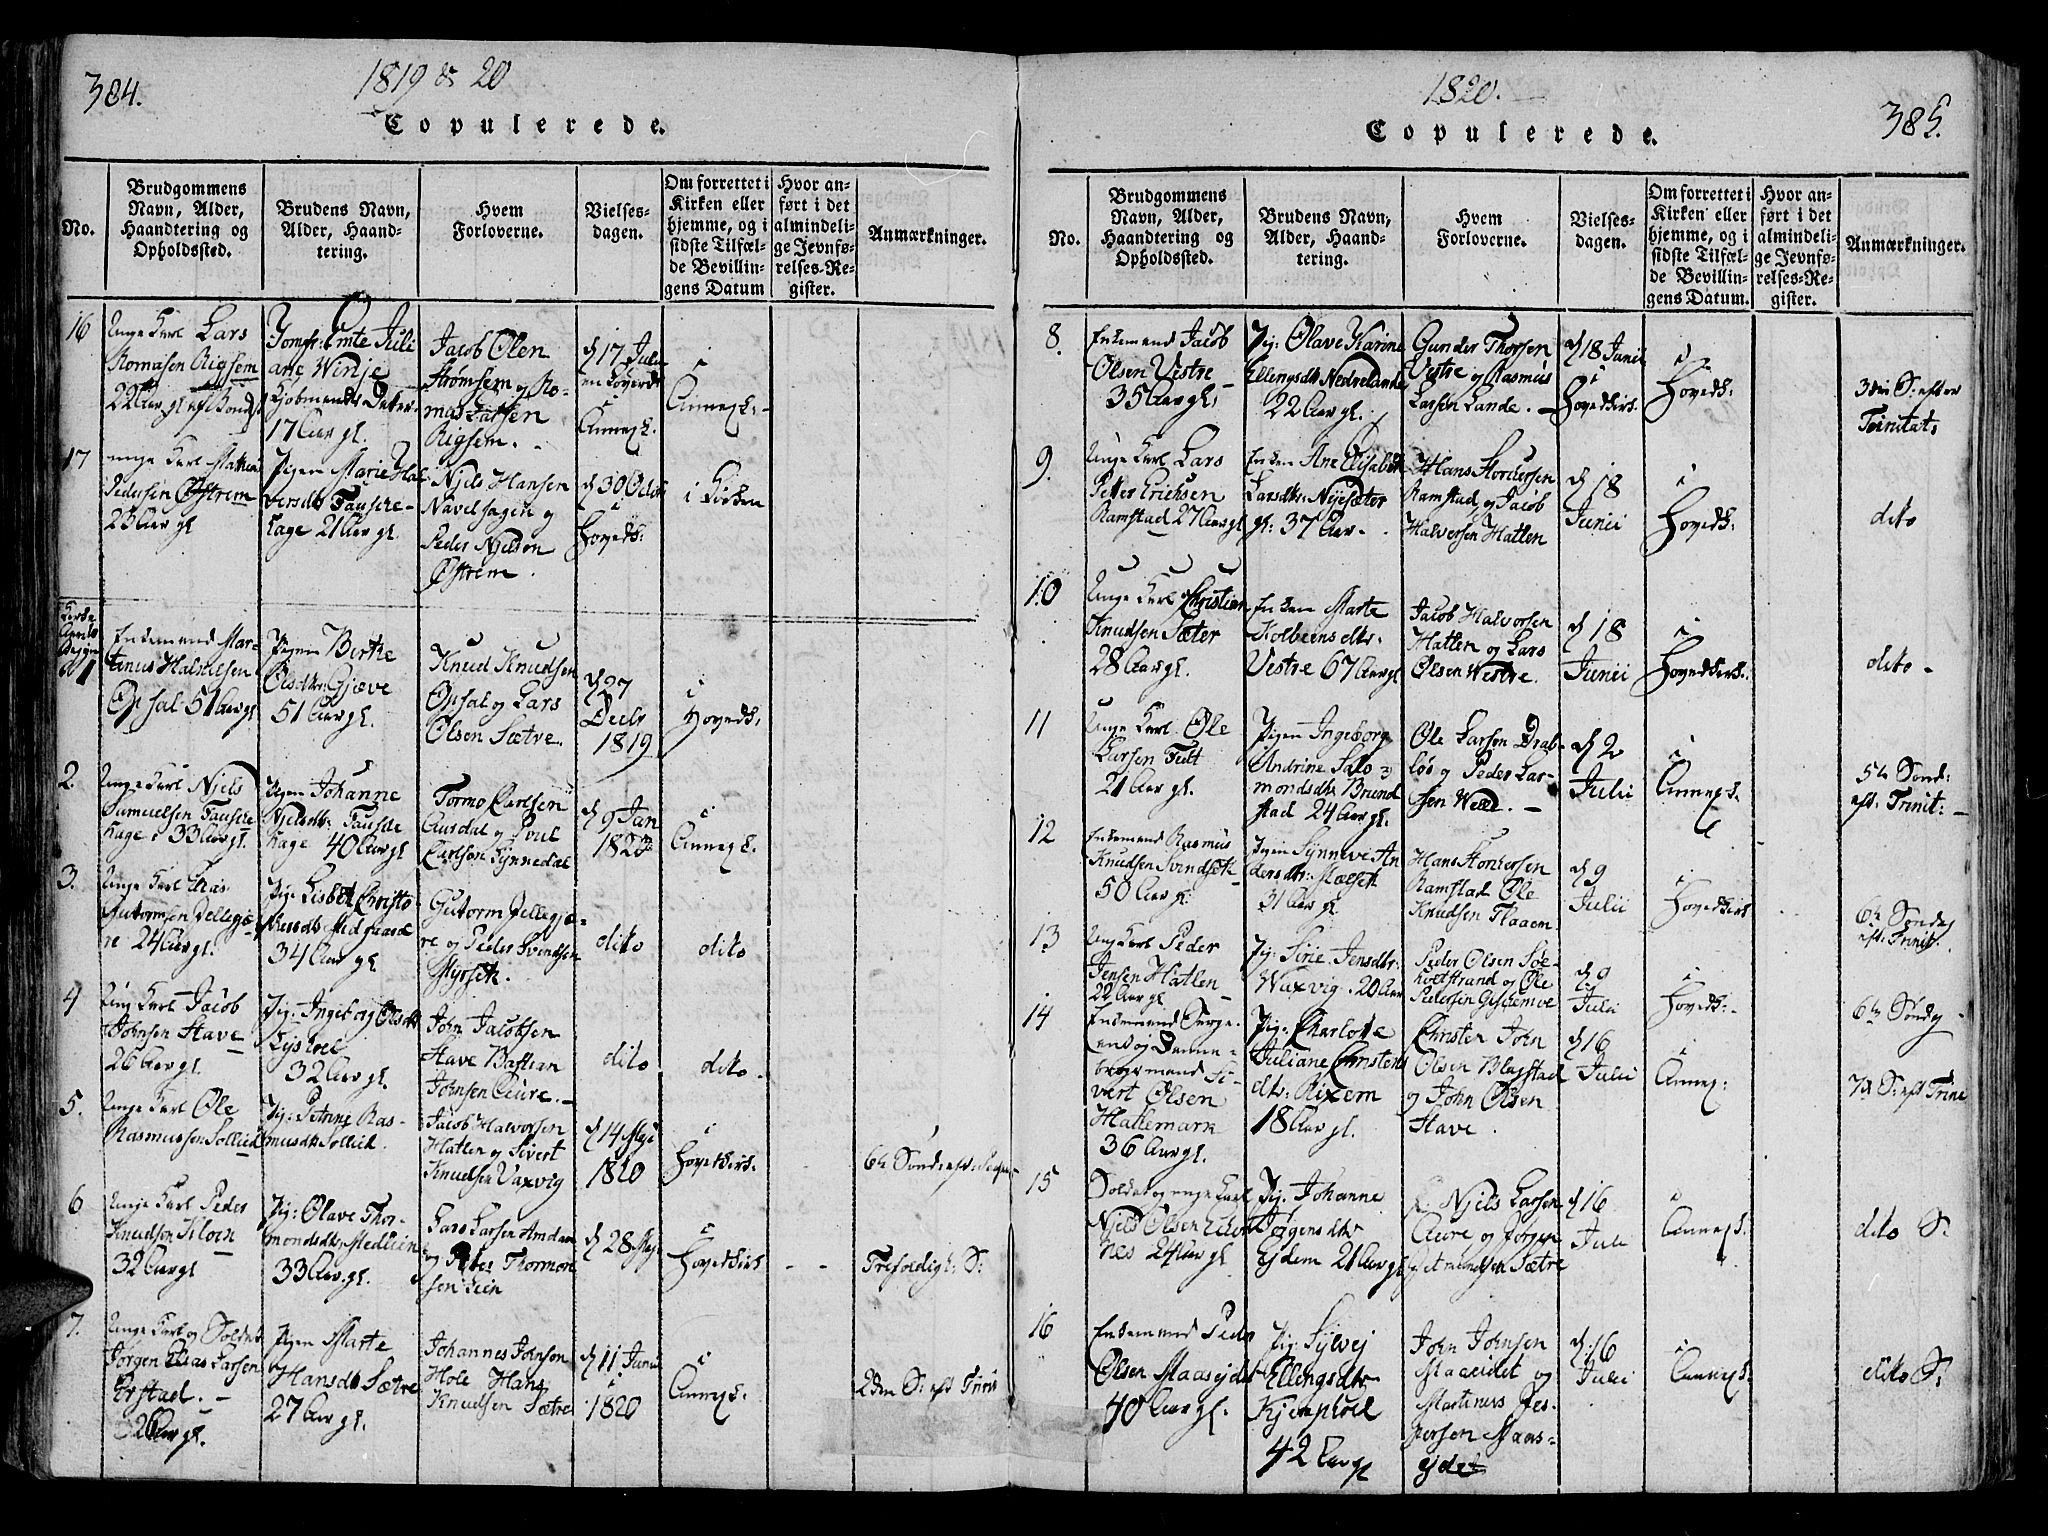 384.
1819 & 20
Copulerede.
No.
Brudgommens Navn, Alder, Haandtering og Opholdssted.
Brudens Navn, Alder, Haandtering.
Hvem Forloverne.
Vielsesdagen.
Om forrettet i Kirken eller hjemme, og i sidste Tilfælde Bevillingens Datum
Hvor anført i det almindelige Jevnførelses-Register.
Anmærkninger.
16
Unge Karl Lars
Romasen Rigsem
22 Aar gl.
Juli
ane Winje
17 Aar gl.
Jacob Olen
Strømsem og Ro-
mas Larsen
Rigsem.
d 17 Juli
i
Annexk.
i
Annexk.
17
unge Karl
Pedersen Østrem
23 Aar gl
Pigen Marie Hal
versdtr Fauske-
hage 21 Aar gl.
Njels Hansen
Navelsagen og
Peder Njelsen
Østrem.
d 30 Octob
i
Hovedk:
i Kirken
1
Enkemand Mar-
tinus
Opsal 51 Aar gl
Pigen Birthe
Olsdtr: Gjæve
51 Aar gl.
Knud Knudsen
Opsal og Lars
Olsen Sætre.
d 27
Decbr
1819
i
Hovedk:
2.
Unge Karl Njels
Samuelsen Fauske
hage 33 Aar gl.
Pigen Johanne
Njelsdtr: Fauske
hage 40 Aar gl
Tormo Carlsen
Aursdal og Poul
Carlsen Synnedal
d 9 Jan
1820
i
Annexk.
3.
Unge Karl
Gutormsen Jellegjæ-
re 24 Aar gl.
Pig: Lisbet Christo-
phersdtr Midgaard
34 Aar gl
Gutorm Jellegjæ-
re og Peder Svendsen
Myrsetr.
dito
dito
4
Ung Karl Jacob
Johnsen Stave
26 Aar gl.
Pig: Ingeborg Olsdtr
Lyshoel
32 Aar gl.
John Jacobsen
Stave Bastian
Johnsen Aure.
dito
dito
5.
Unge Karl Ole
Rasmussen Sollid
Pig: Petrine Ras-
musdtr Sollid.
Jacob Halvorsen
Hatlen og Sivert
Knudsen Vaxvig
d 14 Maji
1820
i
Hovedkirk.
6te Sønd: eft:
6
Unge Karl Peder
Knudsen
32 Aar gl
Pig: Olave Thor-
mondsdtr:
33 Aar gl.
Lars Larsen Amdam
og Peder Thormon
sen
d 28 Maj
i
Hovedkirk
Trefoldigh: S:
7.
Unge Karl og Soldat
Jørgen Elias Larsen
Ørstad.
26 Aar gl.
Pigen Marte
Hansdtr Sætre
27 Aar gl.
Johannes Johnsen
Hole Hans
Knudsen Sætre
d 11 Junii
1820
i
Annexk.
2den S: eft Trinit
1820.
385.
Copulerede.
No.
Brudgommens Navn, Alder, Haandtering og Opholdssted.
Brudens Navn, Alder, Haandtering.
Hvem Forloverne.
Vielsesdagen.
Om forrettet i Kirken eller hjemme, og i sidste Tilfælde Bevillingens Datum.
Hvor anført i det almindelige Jevnførelses-Register.
Anmærkninger.
8.
Enkemand Jacob
Olsen Vestre
35 Aar gl.
Pig: Olave Karine
Ellingsdtr Nedrelande
22 Aar gl.
Gunder Thorsen
Vestre og Rasmus
Larsen Lande.
d 18 Junii
i
Hovedkirk.
i
Hovedk:
3die S: efter
Trinitat:
9.
Unge Karl Lars
Petter Erichsen
Ramstad 27 Aar gl
Enken Ane Elisabeth
Larsdtr: Nyesæter
gl: 37 Aar.
Hans Stordersen
Ramstad og Jacob
Halversen Hatlen
d 18
Junii
i
Hovedk:
dito
10
Unge Karl Christian
Knudsen Sæter
28 Aar gl.
Enken Marte
Kolbeensdtr:
Vestre 67 Aar gl
Jacob Halvorsen
Hatlen og Lars
Olsen Vestre.
d 18
Junii
i
Hovedkirk:
dito
11
Unge Karl Ole
Larsen Tutt
21 Aar gl.
Pigen Ingeborg
Andrine Salo-
mondsdtr Brund
stad 24 Aar gl.
Ole Larsen Drab-
løs og Peder Lar-
sen
d 2
Julii
i
Annexk.
5te Sønd:
eft: Trinit:
12
Enkemand Rasmus
Knudsen Svindsetr
50 Aar gl.
Pigen Synneve An
dersdtr:
31 Aar gl.
Hans Stordersen
Ramstad Ole
Knudsen Flaaem
d 9
Julii
i
Hovedkirk
6te Søndag
eft: Trinit.
13
Ung Karl Peder
Jensen Hatlen
22 Aar gl
Pig: Sirie Jensdtr:
Waxvig. 20 Aar
Peder Olsen Søe-
holtstrand og Ole
Pedersen Gjeskemoe
d 9
Julii
i
Hovedk:
6te Søndag
14
Enkemand Serge-
ent og Danne-
brogsmand Si-
vert Olsen
Hattemark
36 Aar gl.
Pig: Charlotte
Juliane Christens
dtr: Rixem
18 Aar gl.
Christen John
Olsen Blagstad
og John Olsen
Stave.
d 16
Julii
i
Annexk:
7de S: eft Trini
15
Soldat og unge Karl
Njels Olsen
nes 24 Aar gl.
Pig: Johanne
Jørgensdtr
Ejdem 21 Aar gl
Njels Larsen
Aure og Jørgen
Sætre
d 16
Juli
i
Annexk.
dito S:
16
Enkemand Peder
Olsen Maasejdet
40 Aar gl.
Pig: Sylvej
Ellingsdtr
Kjemphoel
42 Aar gl
John Johnsen
Maaseidet og
Martinus Jes-
persen Maas-
ejdet
d: 16
Julii
i
Annexk:
dito S: